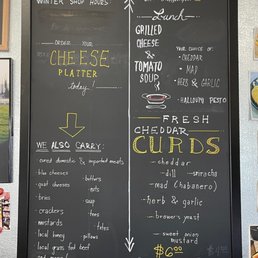 WINTER SHOP HOURS
ORDER YOUR
CHEESE
PLATTER
today!
WE ALSO CARRY:
cured domestic & imported meats
blue cheeses
butters
goat cheeses
eats
bries
soup
crackers
teas
mustards
totes
local honey
pillows
local grass fed beef
Lunch
GRILLED
CHEESE
&
TOMATO
SOUP
YOUR CHOICE OF:
- CHEDDAR
- MAD
- HERB & GARLIC
- HALLOUMI PESTO
FRESH
CHEDDAR
CURDS
- cheddar
- dill
- sriracha
- mad (habanero)
- herb & garlic
- brewer's yeast
- sweet onion
mustard
$6.00